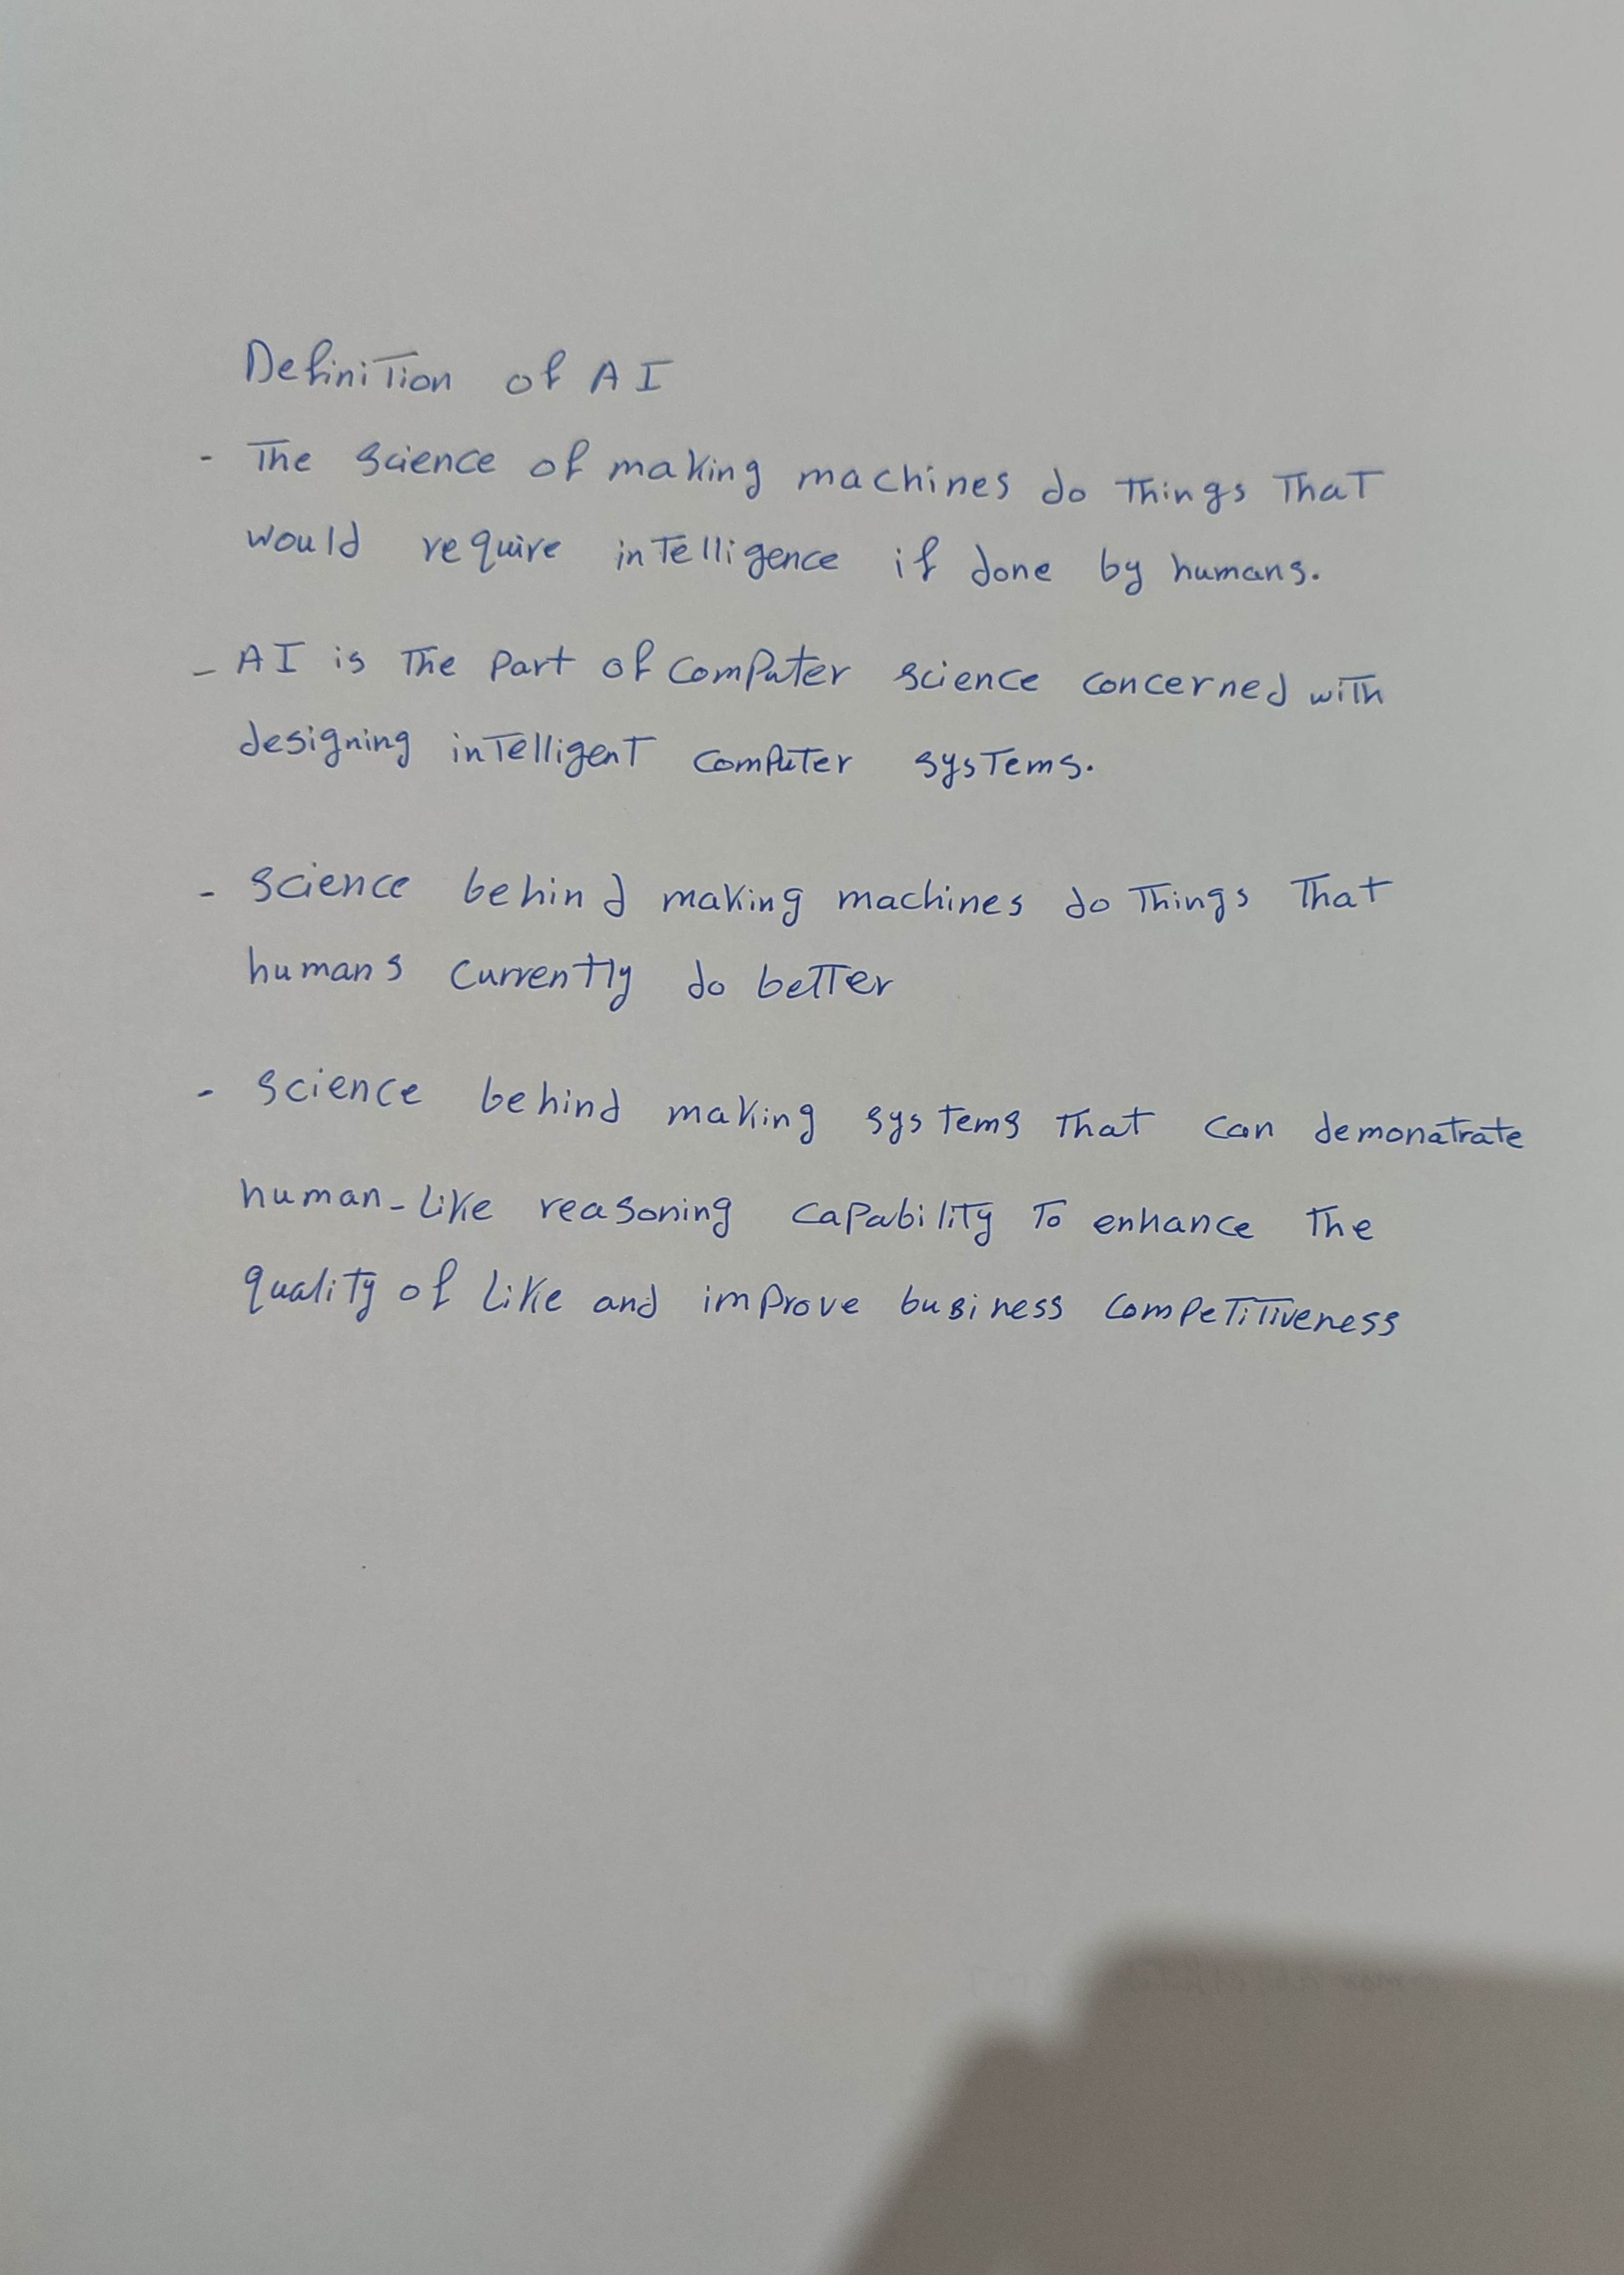 Definition of AI
- The science of making machines do things that
would require intelligence if done by humans.
- AI is the part of computer science concerned with
designing intelligent computer systems.
- science behind making machines do things that
humans currently do better
- science behind making systems that can demonatrate
human-like reasoning capability to enhance the
quality of like and improve business competitiveness